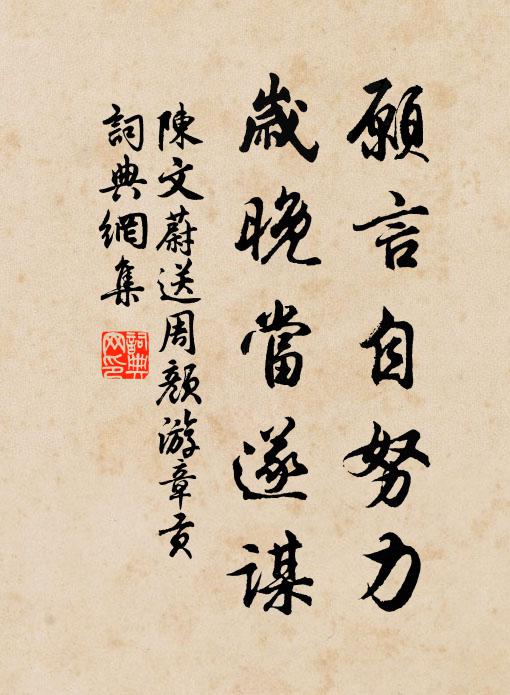 願言自努力
歲晚當遂謀
陳文蔚送周顏游章貢
詞典網集
詞典網印